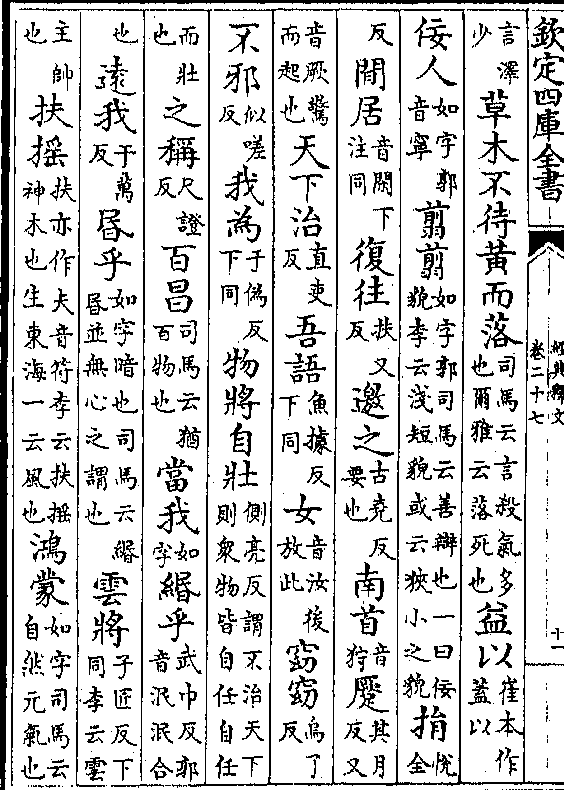 欽定四庫全書
經典釋文
卷二十七
十一
言澤少草木不待黄而落司馬云言殺氣多也爾雅云落死也益以崔本作蓋以
佞人如字郭音寧翦翦如字郭司馬云善辯也一曰佞貌李云淺短貌或云狹小之貌捐悅全
反閒居音閑下注同復往扶又反邀之古堯反要也南首音狩蹷其月反又
音厥驚而起也天下治直吏反吾語魚據反下同女音汝後放此窈窈烏了反
不邪似嗟反我為于偽反下同物將自壯側亮反謂不治天下則衆物皆自任自任
而壯也之稱尺證反百昌司馬云猶百物也當我如字緡乎武巾反郭音泯泯合
也遠我于萬反昬乎如字暗也司馬云緡昬並無心之謂也雲將子匠反下同李云雲
主帥也扶搖扶亦作夫音符李云扶搖神木也生東海一云風也鴻蒙如字司馬云自然元氣也